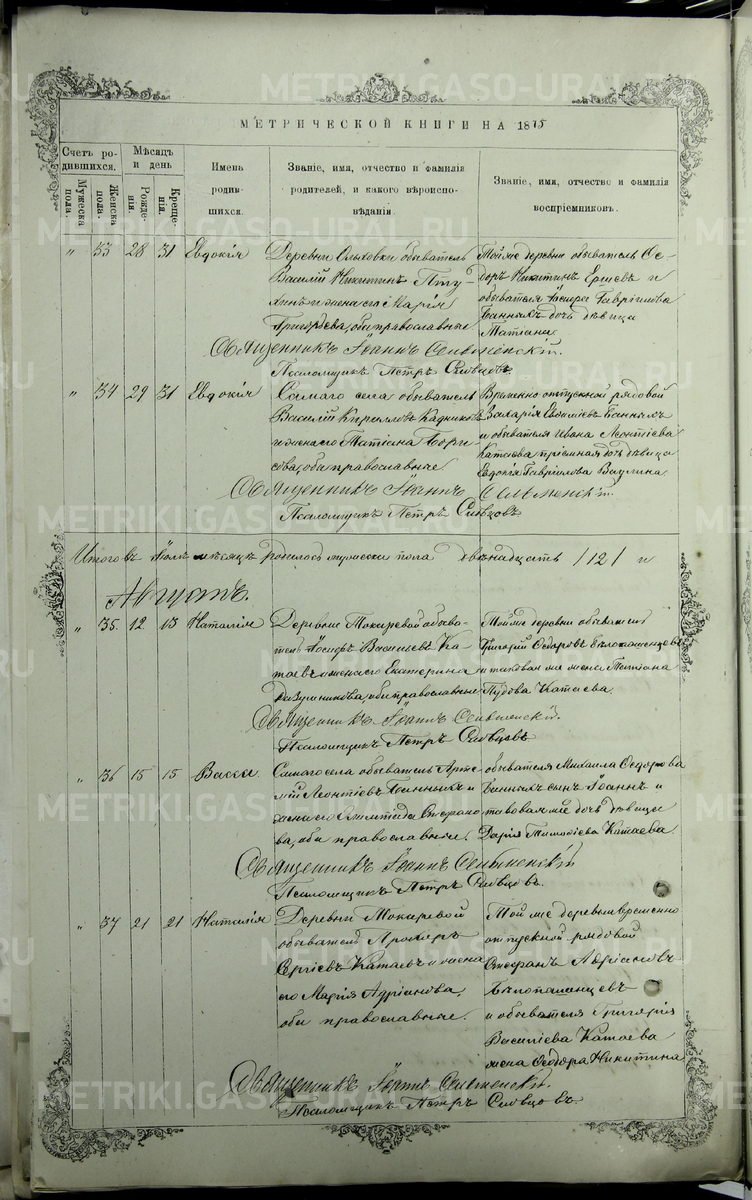 МЕТРИЧЕСКОЙ КНИГИ НА 1875
Счетъ ро-
дившихся.
Мужеска
пола.
Женска
пола.
Мѣсяцъ
и день
Рожде-
нія.
Креще-
нія.
Имена
родив-
шихся.
Званіе, имя, отчество и фамилія
родителей, и какого вѣроиспо-
вѣданія.
Званіе, имя, отчество и фамилія
воспріемниковъ.
" 33 28 31 Евдокія
Деревни Ольховки обыватель
Василій Никитинъ Пту-
хинъ и жена его Марія
Григорьева, оба православные
Той же деревни обыватель Ѳе-
доръ Никитинъ Ершевъ и
обывателя Гавріилова
Банныхъ дочь дѣвица
Матіана.
Священникъ Іоаннъ
Псаломщикъ Петръ Сивцовъ.
" 34 29 31 Евдокія
Самаго села обыватель
Василій Кирилловъ Кадниковъ
и жена его Татіана Бори-
сова, оба православные
Временно отпускной рядовой
Захарія Банныхъ
и обывателя Ивана Леонтіева
Катаева пріемная дочь дѣвица
Евдокія Гаврилова Ваулина
Священникъ Іоаннъ
Псаломщикъ Петръ Сивцовъ
Итого въ Іюлѣ мѣсяцѣ родилось мужеска пола двѣнадцать /12/ и
Августъ.
" 35 12 13 Наталія
Деревни Токаревой обыва-
тель Іосифъ Васильевъ Ка-
таевъ и жена его Екатерина
Разумникова, оба православные
Той же деревни обыватель
Григорій Ѳедоровъ Бѣлопашенцевъ
и таковая же жена Татіана
Пудова Катаева.
Священникъ Іоаннъ
Псаломщикъ Петръ Сивцовъ
" 36 15 15 Васса.
Самаго села обыватель Арте-
мій Леонтіевъ Банныхъ и
жена его Стефано-
ва, оба православные.
обывателя Михаила Ѳедорова
Банныхъ сынъ Іоаннъ и
таковая же дочь дѣвица
Дарія Тимоѳіева Катаева
Священникъ Іоаннъ
Псаломщикъ Петръ Сивцовъ.
" 37 21 21 Наталія
Деревни Токаревой
обыватель Прохоръ
Сергіевъ Катаевъ и жена
его Марія Адріанова,
оба православные.
Той же деревни временно
отпускной рядовой
Стефанъ Адріановъ
Бѣлопашенцевъ
и обывателя Григорія
Василіева Катаева
жена Ѳеодора Никитина
Священникъ Іоаннъ
Псаломщикъ Петръ Сивцовъ.
METRIKI.GASO-URAL.RU